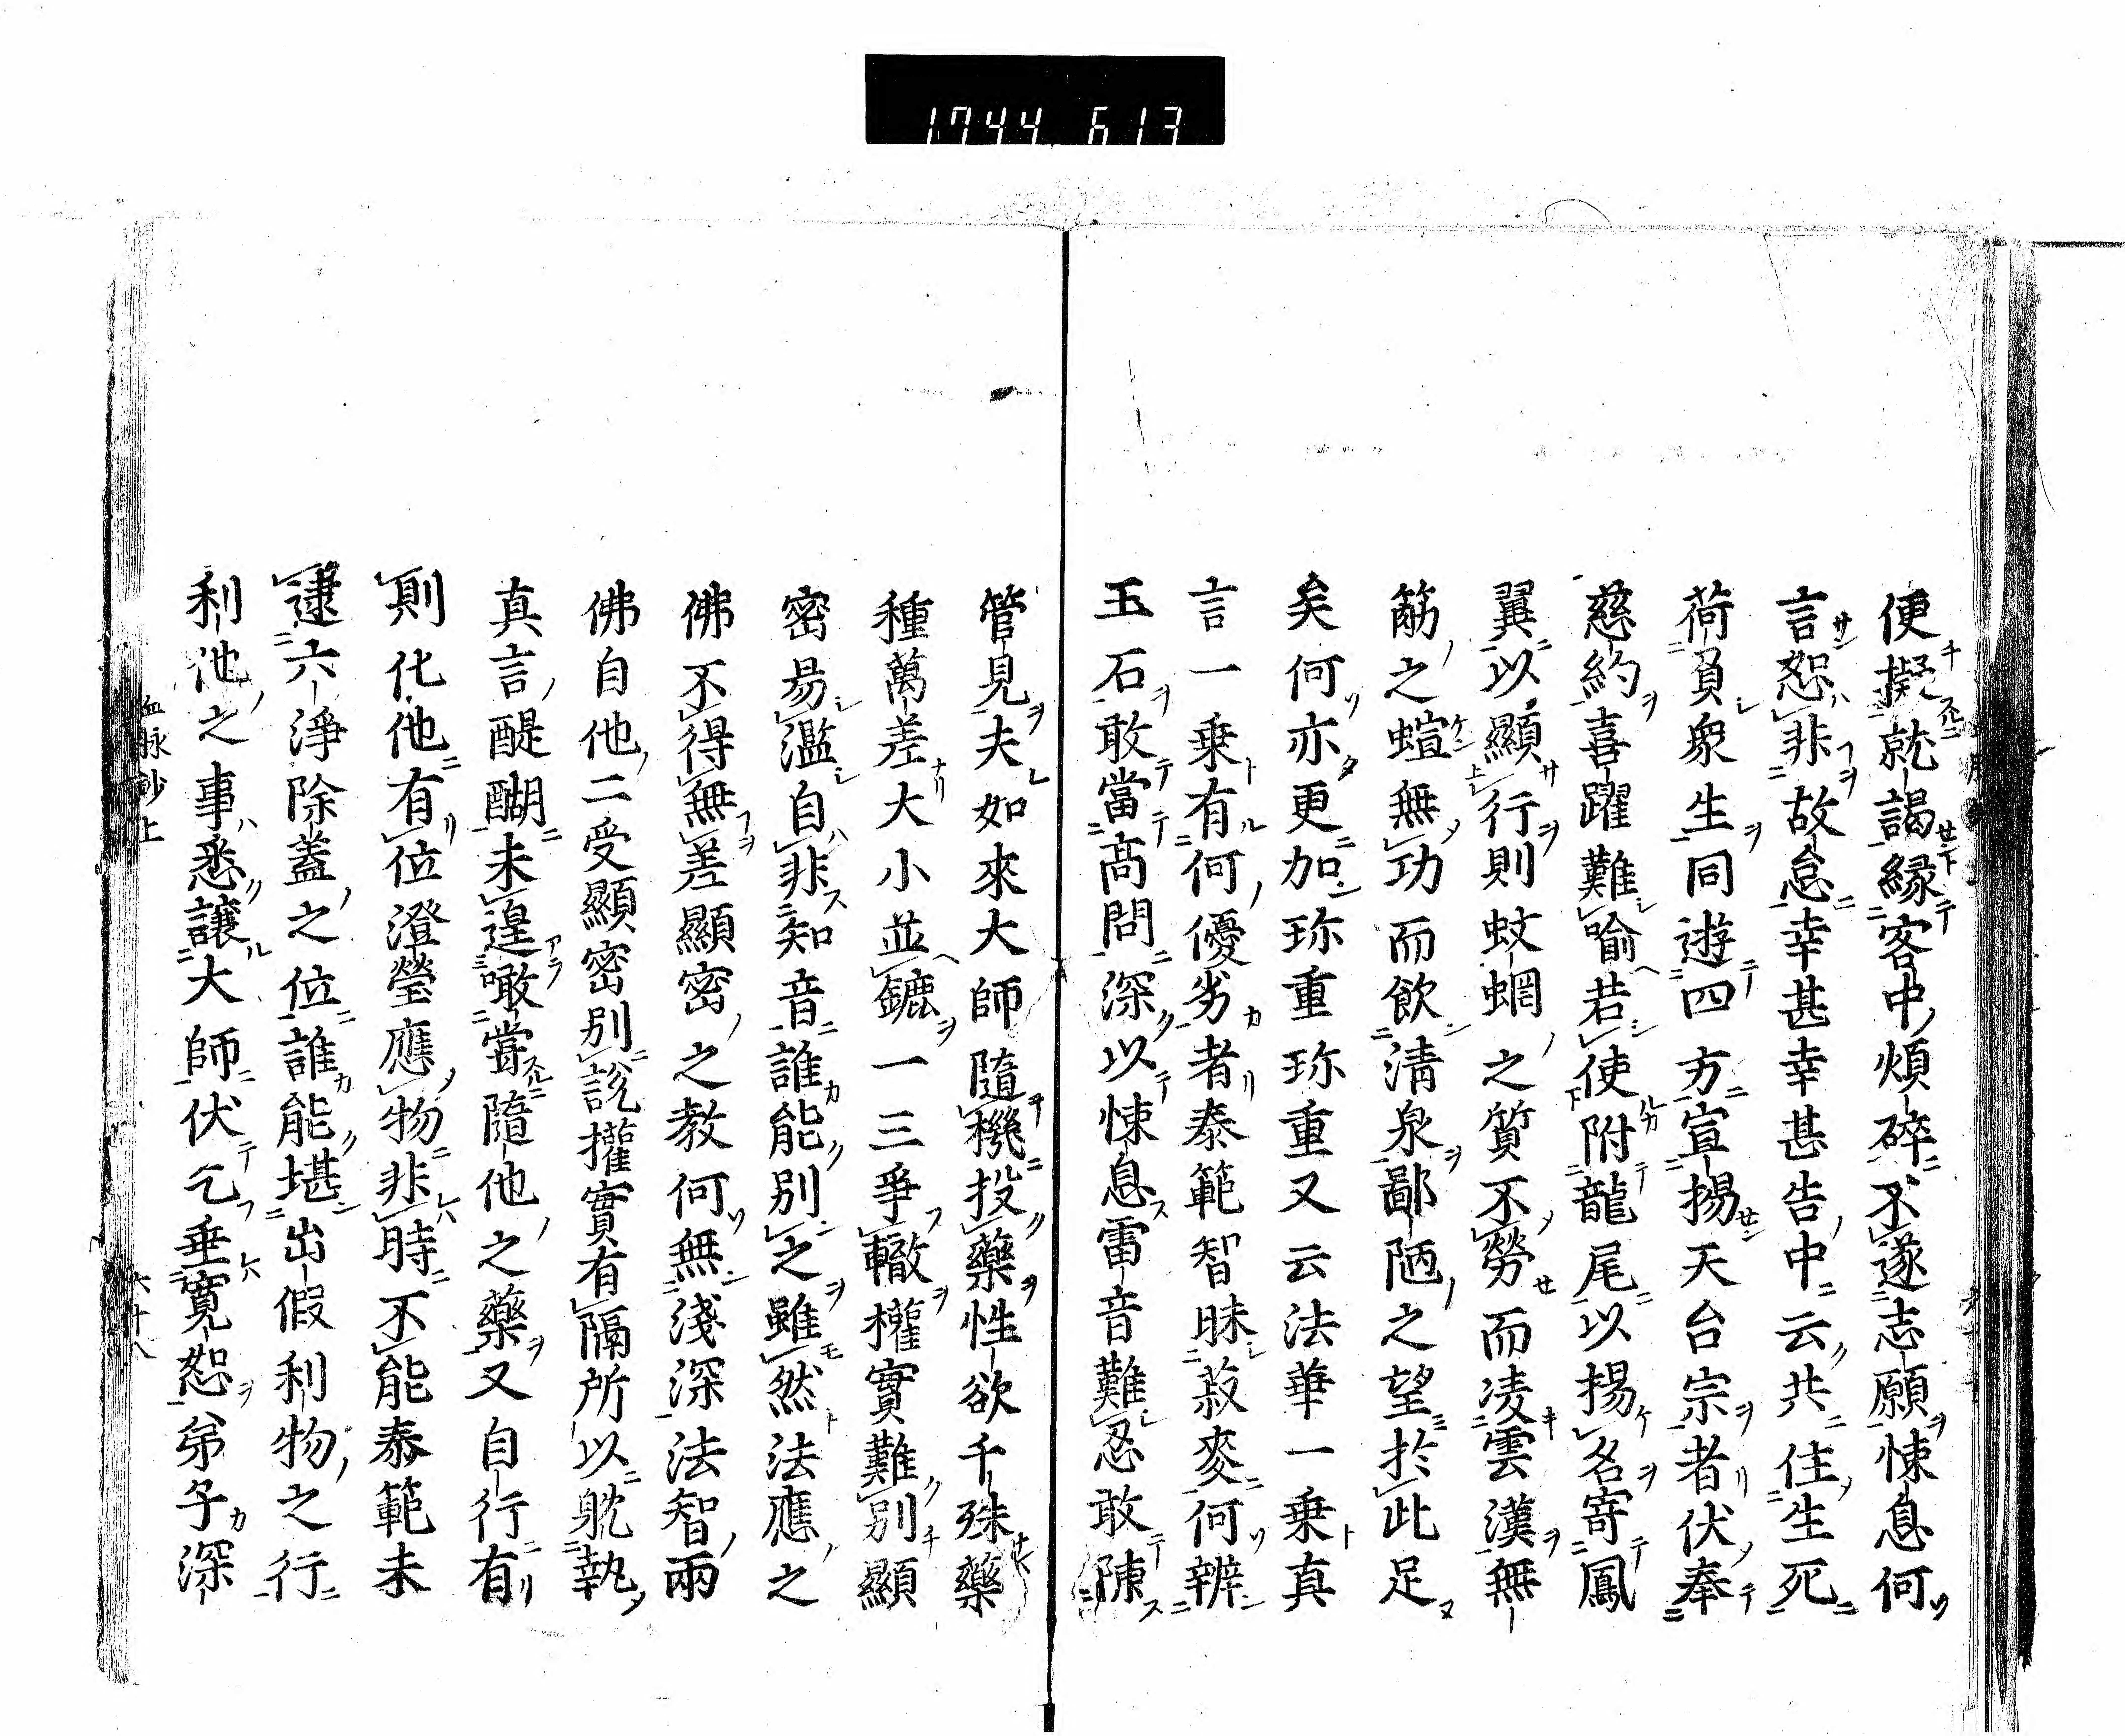 1744 613
便擬就謁縁客中煩碎不遂志願悚息何
言恕非故怠幸甚幸甚告中云共住生死
荷負衆生同遊四方宣揚天台宗者伏奉
慈約喜躍難喩若使附龍尾以揚名寄鳳
翼以顯行則蚊蝄之質不勞而凌雲漢無
筋之螾無功而飲淸泉鄙陋之望於此足
矣何亦更加珎重珎重又云法華一乗真
言一乗有何優劣者泰範智昧菽麥何辨
玉石敢當髙問深以悚息雷音難忍敢陳
管見夫如來大師隨機投藥性欲千殊藥
種萬差大小並鑣一三爭轍權實難別顯
密昜濫自非知音誰能別之雖然法應之
佛不得無差顯密之教何無淺深法智兩
佛自他二受顯密別說權實有隔所以躭執
真言醍醐未遑噉甞隨他之藥又自行有
則化他有位澄瑩應物非時不能泰範未
逮六淨除蓋之位誰能堪出假利物之行
利他之事悉讓大師伏乞垂寛恕弟子深
血脉鈔上
六十八